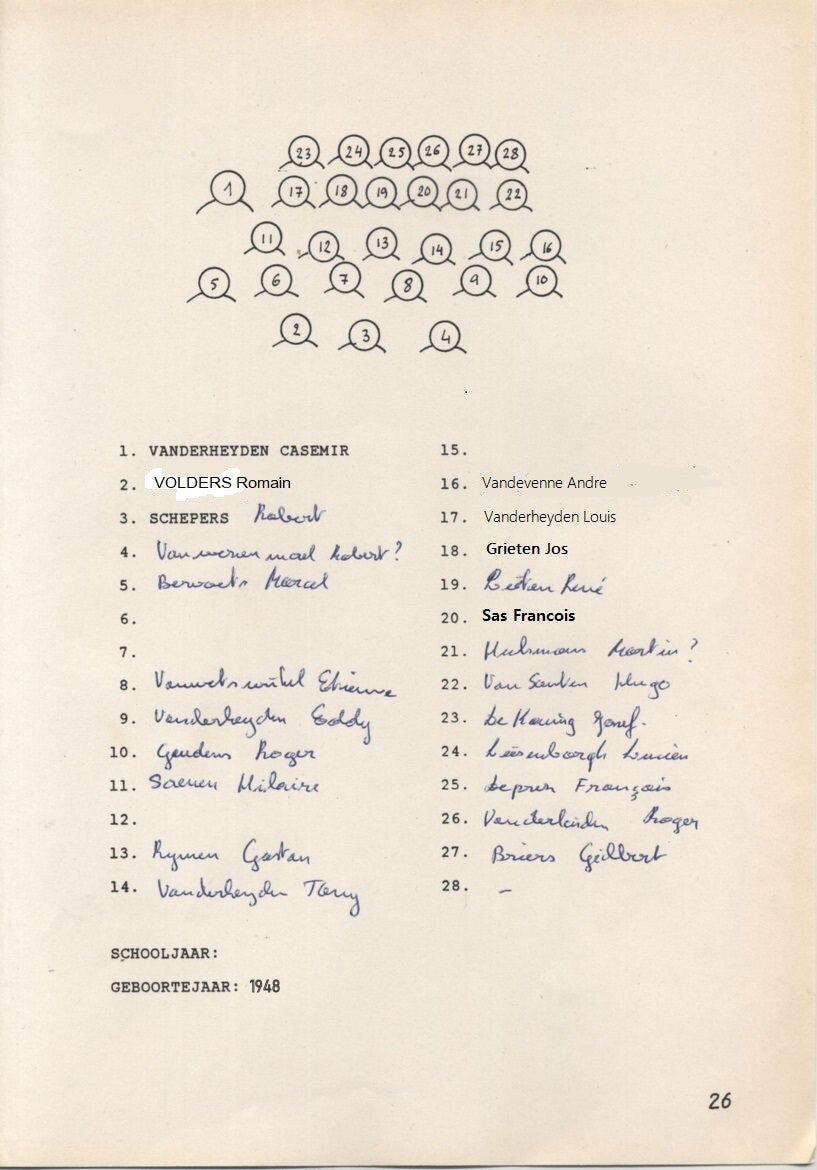 23 24 25 26 27 28
1 17 18 19 20 21 22
11 12 13 14 15 16
5 6 7 8 9 10
2 3 4
1. VANDERHEYDEN CASEMIR
2. VOLDERS Romain
3. SCHEPERS Robert
4. Robert?
5. Marcel
6.
7.
8. Etienne
9. Vanderheyden Eddy
10. Geudens Roger
11. Saenen Hilaire
12.
13. Rymen Gaston
14. Vanderheyden Tony
15.
16. Vandevenne Andre
17. Vanderheyden Louis
18. Grieten Jos
19. René
20. Sas Francois
21. Hulsmans Martin?
22. Van Santen Hugo
23. De Koning Jozef.
24. Lucien
25. François
26. Roger
27. Briers Gilbert
28. –
SCHOOLJAAR:
GEBOORTEJAAR: 1948
26